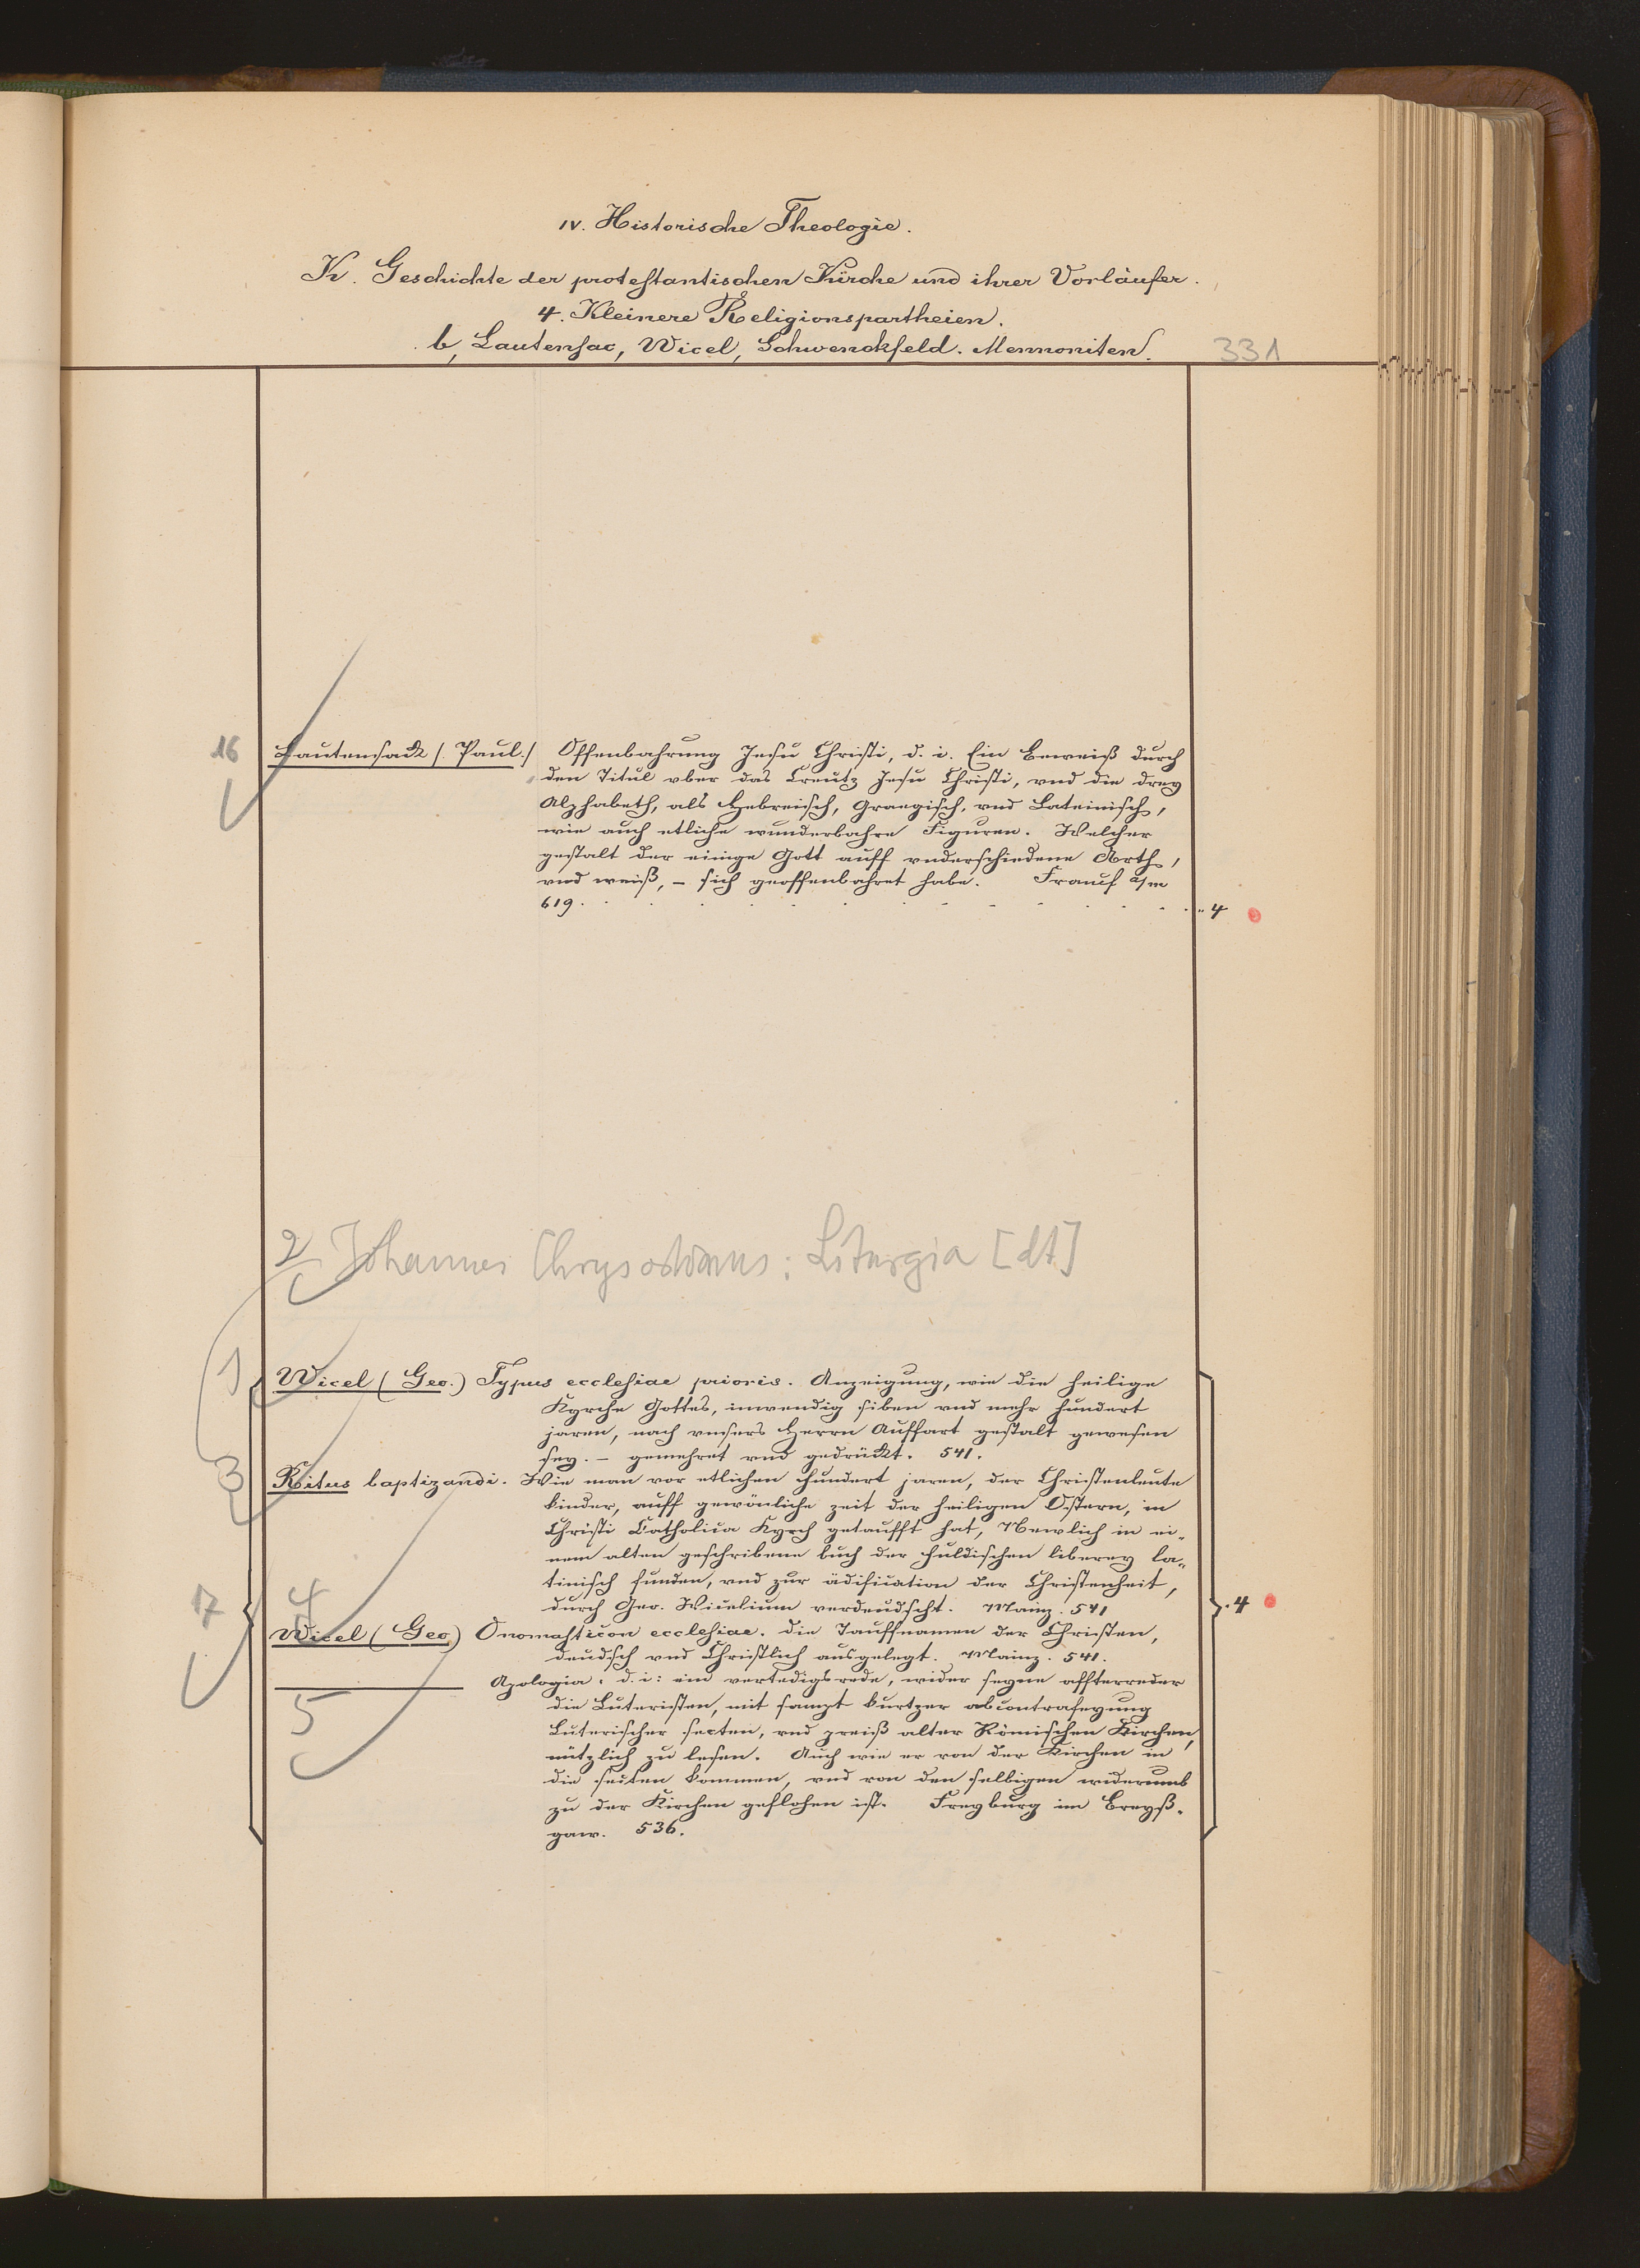 IV. Historische Theologie.
K. Geschichte der protestantischen Kirche und ihrer Vorläufer.
4. Kleinere Religionspartheien.
b, Lautensac, Wicel, Schwenckfeld. Mennoniten.
331
16 Lautensack (Paul.) Offenbahrung Jesu Christi, d. i. Ein Beweiß durch
den Titul vber das Creutz Jesu Christi, vnd die drey
Alphabeth, als Hebreisch, Graegisch, vnd Lateinisch,
wie auch etliche wunderbahre Figuren. Welcher
gestalt der einige Gott auff vnderschiedene Arth,
vnd weiß, – sich geoffenbahret habe. Francf a/m
619. . . . . . . . . . . . . . 4
2 Johannes Chrysostomus: Liturgia [dt]
1 Wicel (Geo.) Typus ecclesiae prioris. Anzeigung, wie die heilige
Kyrche Gottes, inwendig siben vnd mehr hundert
jaren, nach vnsers Herrn Auffart gestalt gewesen
sey. – gemehret vnd gedrückt. 541.
3 Ritus baptizandi. Wie man vor etlichen hundert jaren, der Christenleute
kinder, auff gewönliche zeit der heiligen Ostern, in
Christi Catholica Kyrch getaufft hat, Newlich in ei-
nem alten geschribene buch der fuldischen liberey la-
tinisch funden, vnd zur ädification der Christenheit,
17 durch Geo. Wicelium verdeudscht. Mainz. 541 . 4
4 Wicel (Geo) Onomasticon ecclesiae. die Tauffnamen der Christen,
deudsch vnd Christlich ausgelegt. Mainz. 541.
5 Apologia: d. i: ein vertedigsrede, wider seyne affterreder
die Luteristen, mit sampt kurtzer abcontrafeyung
Luterischer secten, vnd preiß alter Römischen Kirchen,
nützlich zu lesen. Auch wie er von der Kirchen in
die secten kommen, vnd von den selbigen widerumb
zu der Kirchen geflohen ist. Freyburg im Breyß-
gaw. 536.